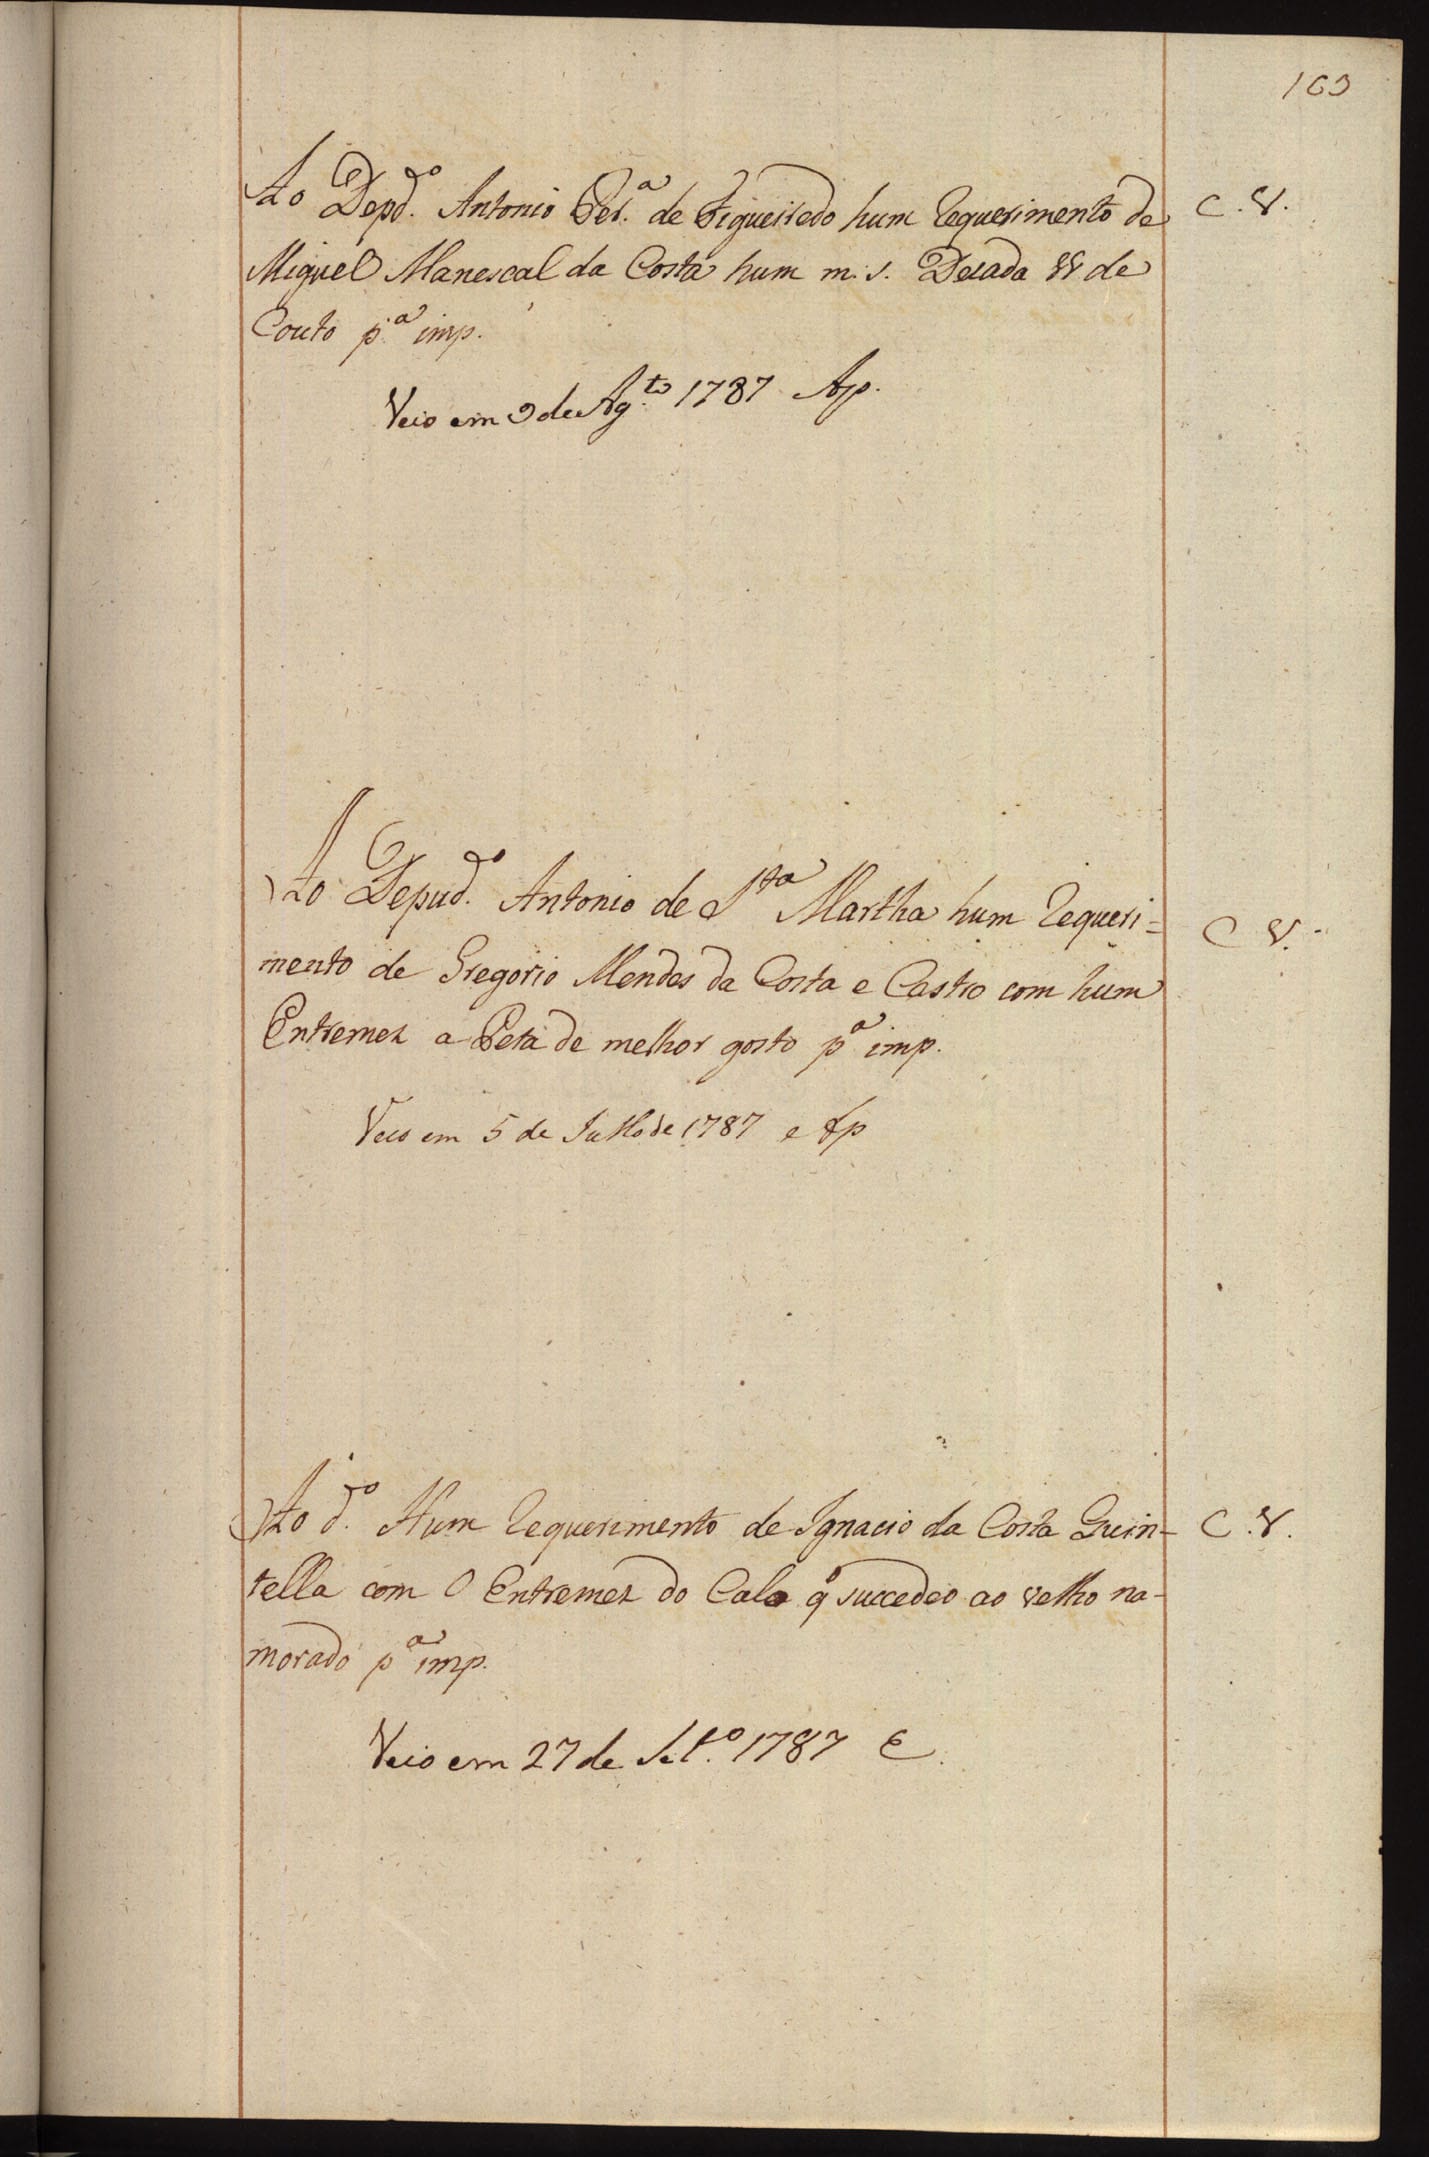 163
Ao Depd.º Antonio Per.ª de Figueiredo hum Requerimento de C. V.
Miguel Manescal da Costa hum m. s. Decada de
Couto p.ª imp.
Veio em 9 de Ag.to 1787 Ap.
Ao Depud.º Antonio de S.ta Martha hum Requeri= C V.
mento de Gregorio Mendes da Costa e Castro com hum
Entremez a Peta de melhor gosto pª imp.
Veio em 5 de Julho de 1787 e Ap
Ao d.º Hum Requerimento de Ignacio da Costa Quin- C. V.
tella com O Entremez do Calo q̃ succedeo ao velho na-
morado pª imp.
Veio em 27 de Set.º 1787 E